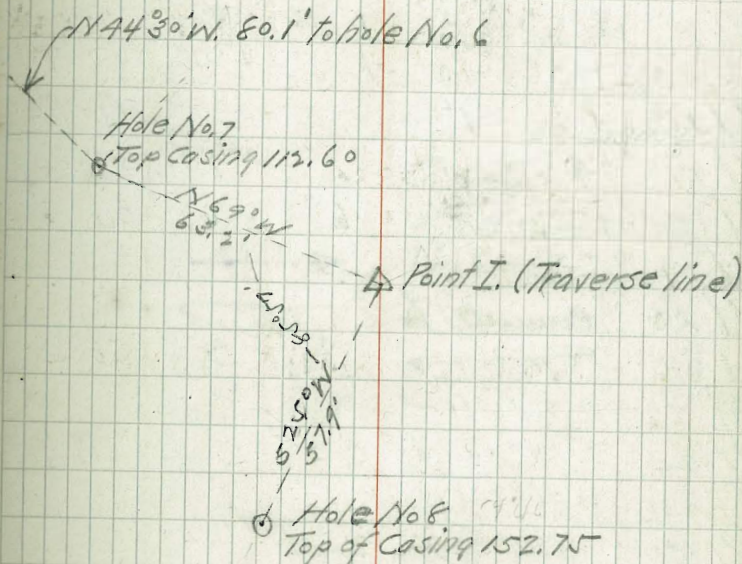 N44°30'W. 80.1' to hole No. 6
Hole No. 7
Top Casing 112.60
N69°W
63.2'
Point I. (Traverse line)
S25°W
57.9'
Hole No 8
Top of Casing 152.75